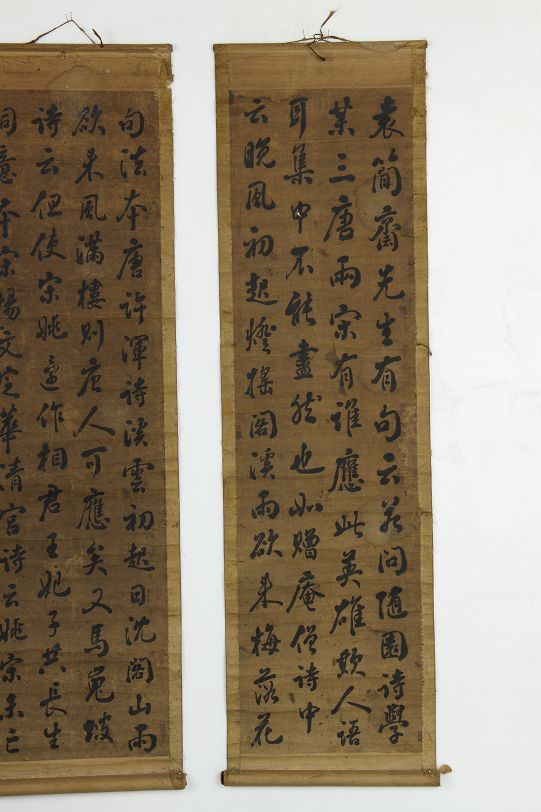 袁簡齋先生有句云若問隨園詩學
某三唐兩宋有誰應此英雄欺人語
耳集中不能盡然也如贈庵僧詩中
云晚風初起燈搖閣溪雨欲来梅落花
句法本唐許渾詩溪雲初起日沈閣山雨
欲来風滿樓則唐人可應矣又馬嵬坡
詩云但使宋姚還作相君王妃子共長生
同意本宋楊文華清宮詩云姚宋未亡